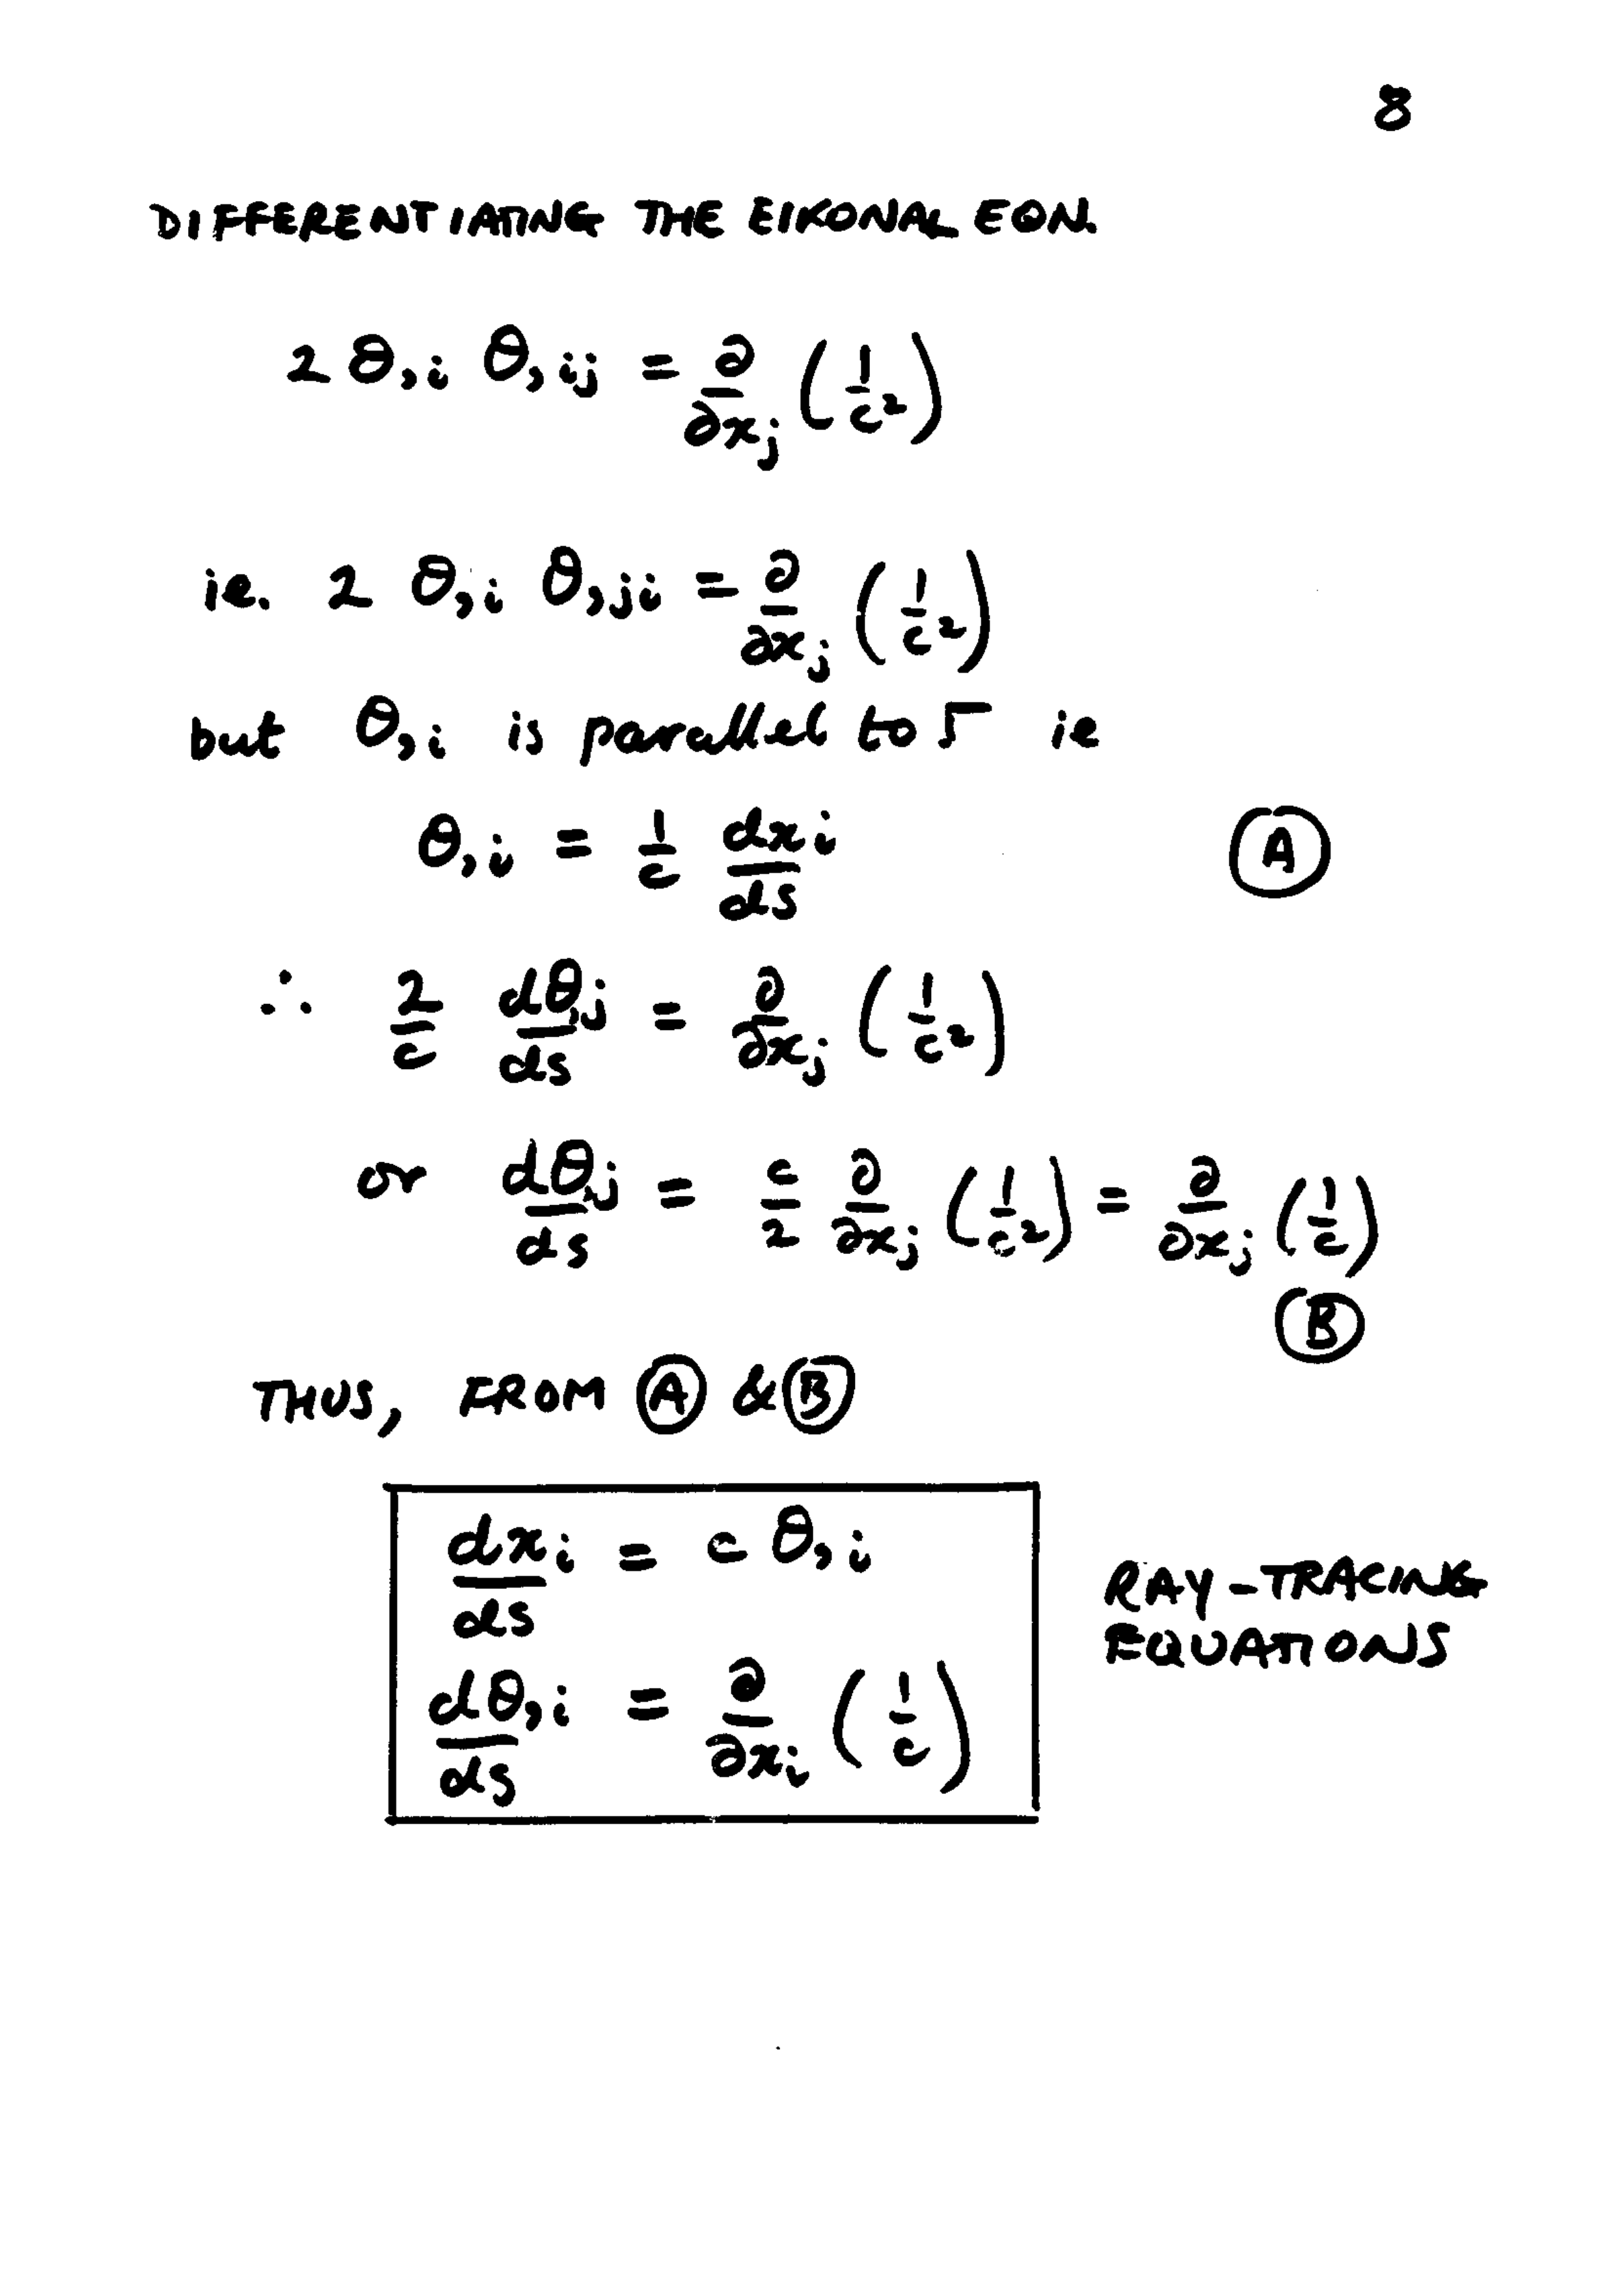 8
DIFFERENTIATING THE EIKONAL EQN.
2 θ,i θ,ij = ∂/∂xj (1/c²)
ie. 2 θ,i θ,ji = ∂/∂xj (1/c²)
but θ,i is parallel to s ie
θ,i = 1/c dxi/ds Ⓐ
∴ 2/c dθ,j/ds = ∂/∂xj (1/c²)
or dθ,j/ds = c/2 ∂/∂xj (1/c²) = ∂/∂xj (1/c)
Ⓑ
THUS, FROM Ⓐ & Ⓑ
dxi/ds = c θ,i
RAY-TRACING
EQUATIONS
dθ,i/ds = ∂/∂xi (1/c)